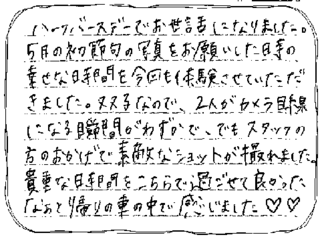 ハーフバースデーでお世話になりました。
5月の初節句の写真をお願いした日等の
幸せな日時間を今回も体験させていただ
きました。ヌヌるなので、2人がカメラ目線
になる瞬間がわずかで、でもスタッフの
方のおかげで素敵なショットが撮れました。
貴重な日時間をこちらで過ごせて良かった
なぁと帰りの車の中で感じました♡♡